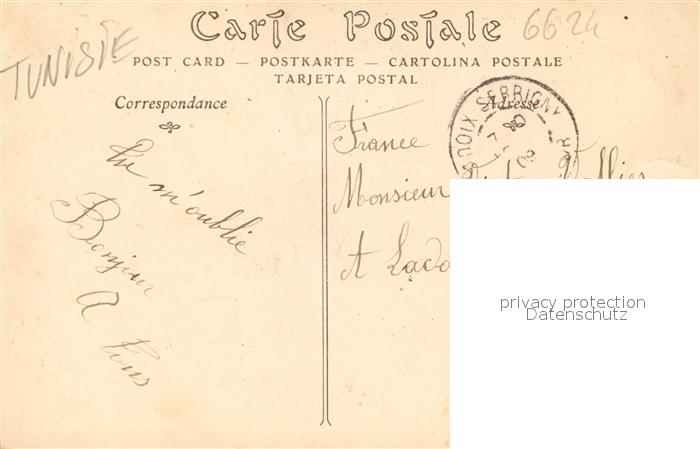 Carte Postale
6624
TUNISIE
POST CARD — POSTKARTE — CARTOLINA POSTALE
TARJETA POSTAL
Correspondance
Adresse
LADOIX SERRIGNY
7
09
tu m'oublie
Bonjour
A tous
France
Monsieur
A Lado
privacy protection
Datenschutz